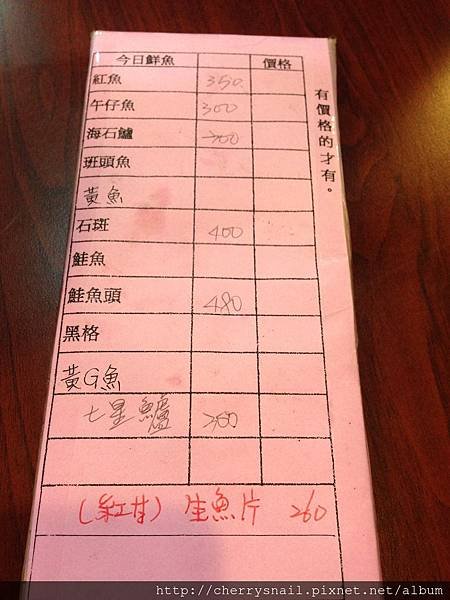 今日鮮魚 價格
紅魚 350
午仔魚 300
海石鱸
班頭魚
黃魚
石斑 400
鮭魚
鮭魚頭 480
黑格
黃G魚
七星鱸
(紅甘) 生魚片 260
有價格的才有。
http://cherrysnail.pixnet.net/album